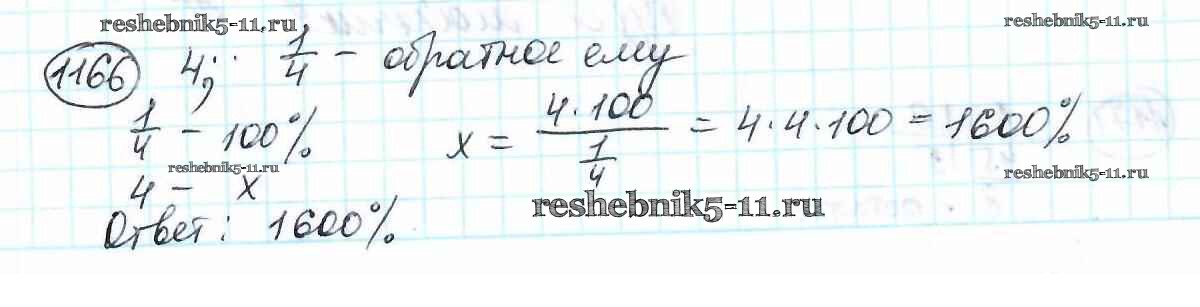 reshebnik5-11.ru reshebnik5-11.ru
1166 4; 1/4 - обратное ему
1/4 - 100% x = 4·100 / 1/4 = 4·4·100 = 1600%
reshebnik5-11.ru reshebnik5-11.ru
4 - x
reshebnik5-11.ru
Ответ: 1600%